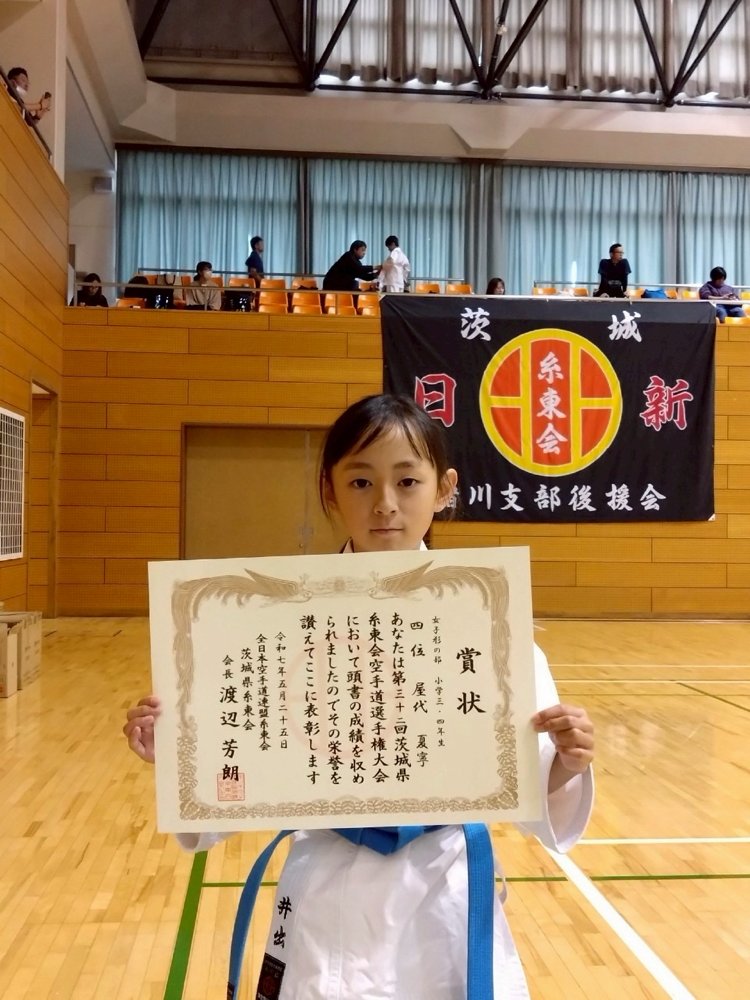 茨 城
日 新
糸東会
川支部後援会
賞状
女子形の部 小学三・四年生
四位 屋代 夏寧
あなたは第三十二回茨城県
糸東会空手道選手権大会
において頭書の成績を収め
られましたのでその栄誉を
讃えてここに表彰します
令和七年五月二十五日
全日本空手道連盟糸東会
茨城県糸東会
会長 渡辺芳朗
井出